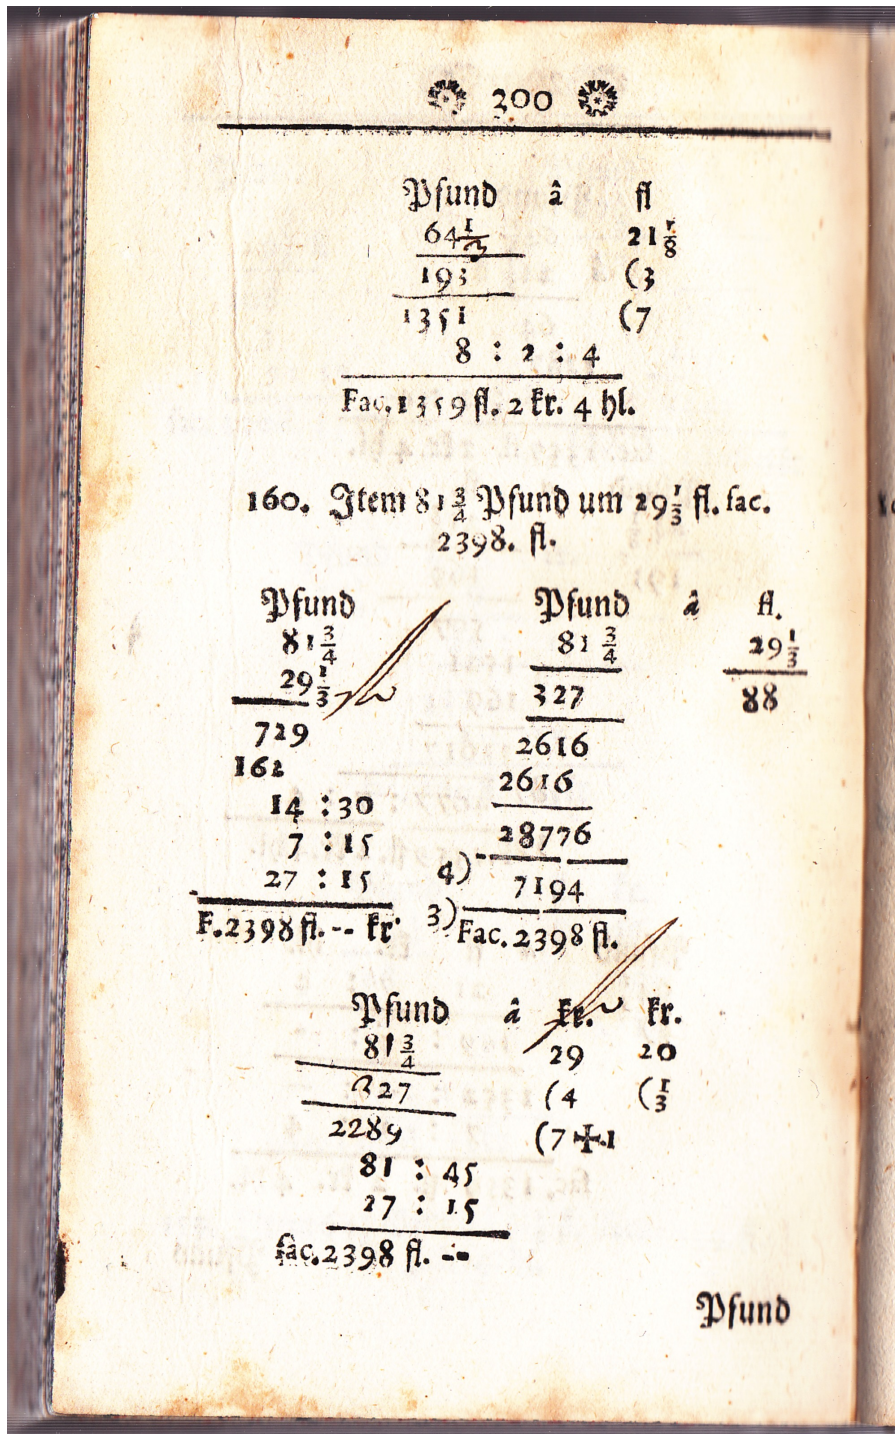 300
Pfund â fl
64 1/3 21 1/8
193 (3
1351 (7
8 : 2 : 4
Fac. 1359 fl. 2 kr. 4 hl.
160. Item 81 3/4 Pfund um 29 1/3 fl. fac.
2398. fl.
Pfund
81 3/4
29 1/3
729
162
14 : 30
7 : 15
27 : 15
F. 2398 fl. -- kr
Pfund â fl.
81 3/4 29 1/3
327 88
2616
2616
28776
4) 7194
3) Fac. 2398 fl.
Pfund â kr. kr.
81 3/4 29 20
327 (4 (1/3
2289 (7 + 1
81 : 45
27 : 15
fac. 2398 fl. --
Pfund